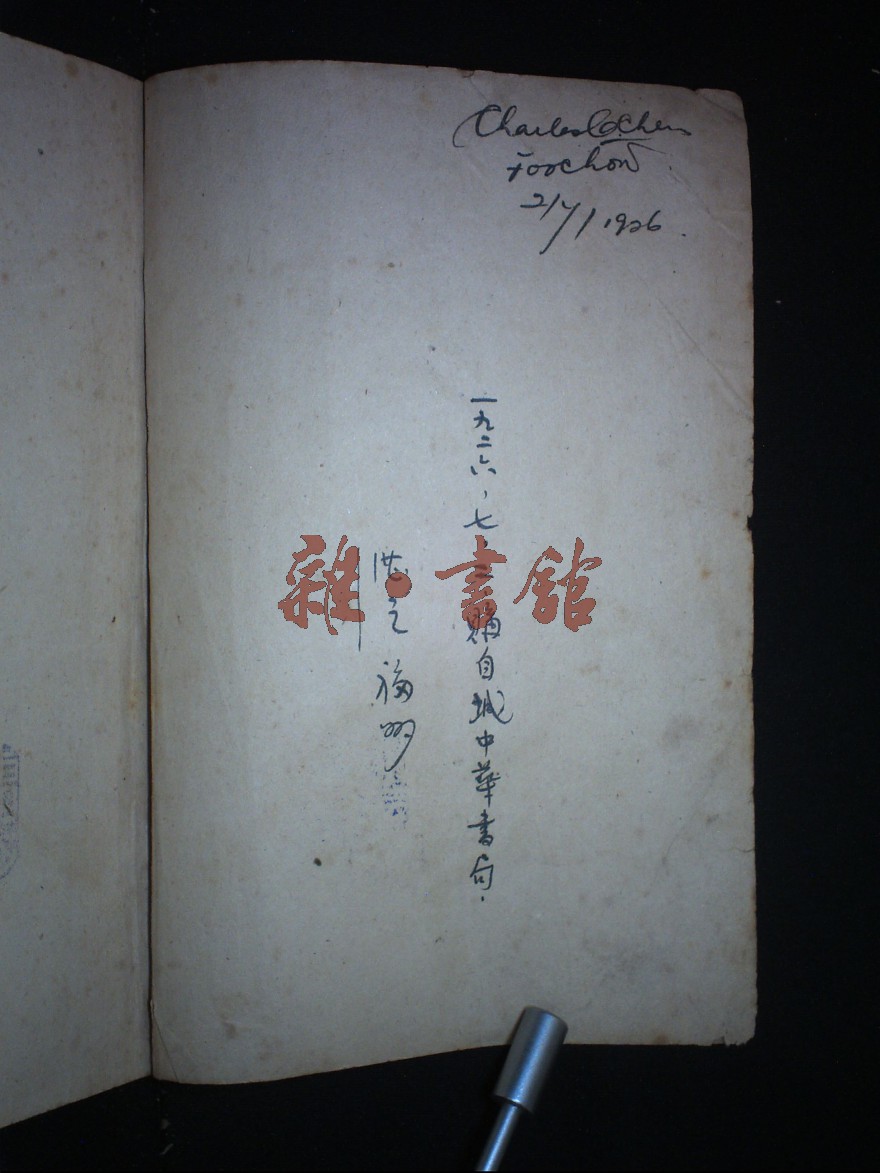 Charles C. Chen
Foochow
2/7/1926.
一九二六、七、二購自城中華書局.
之 福州
雜·書館